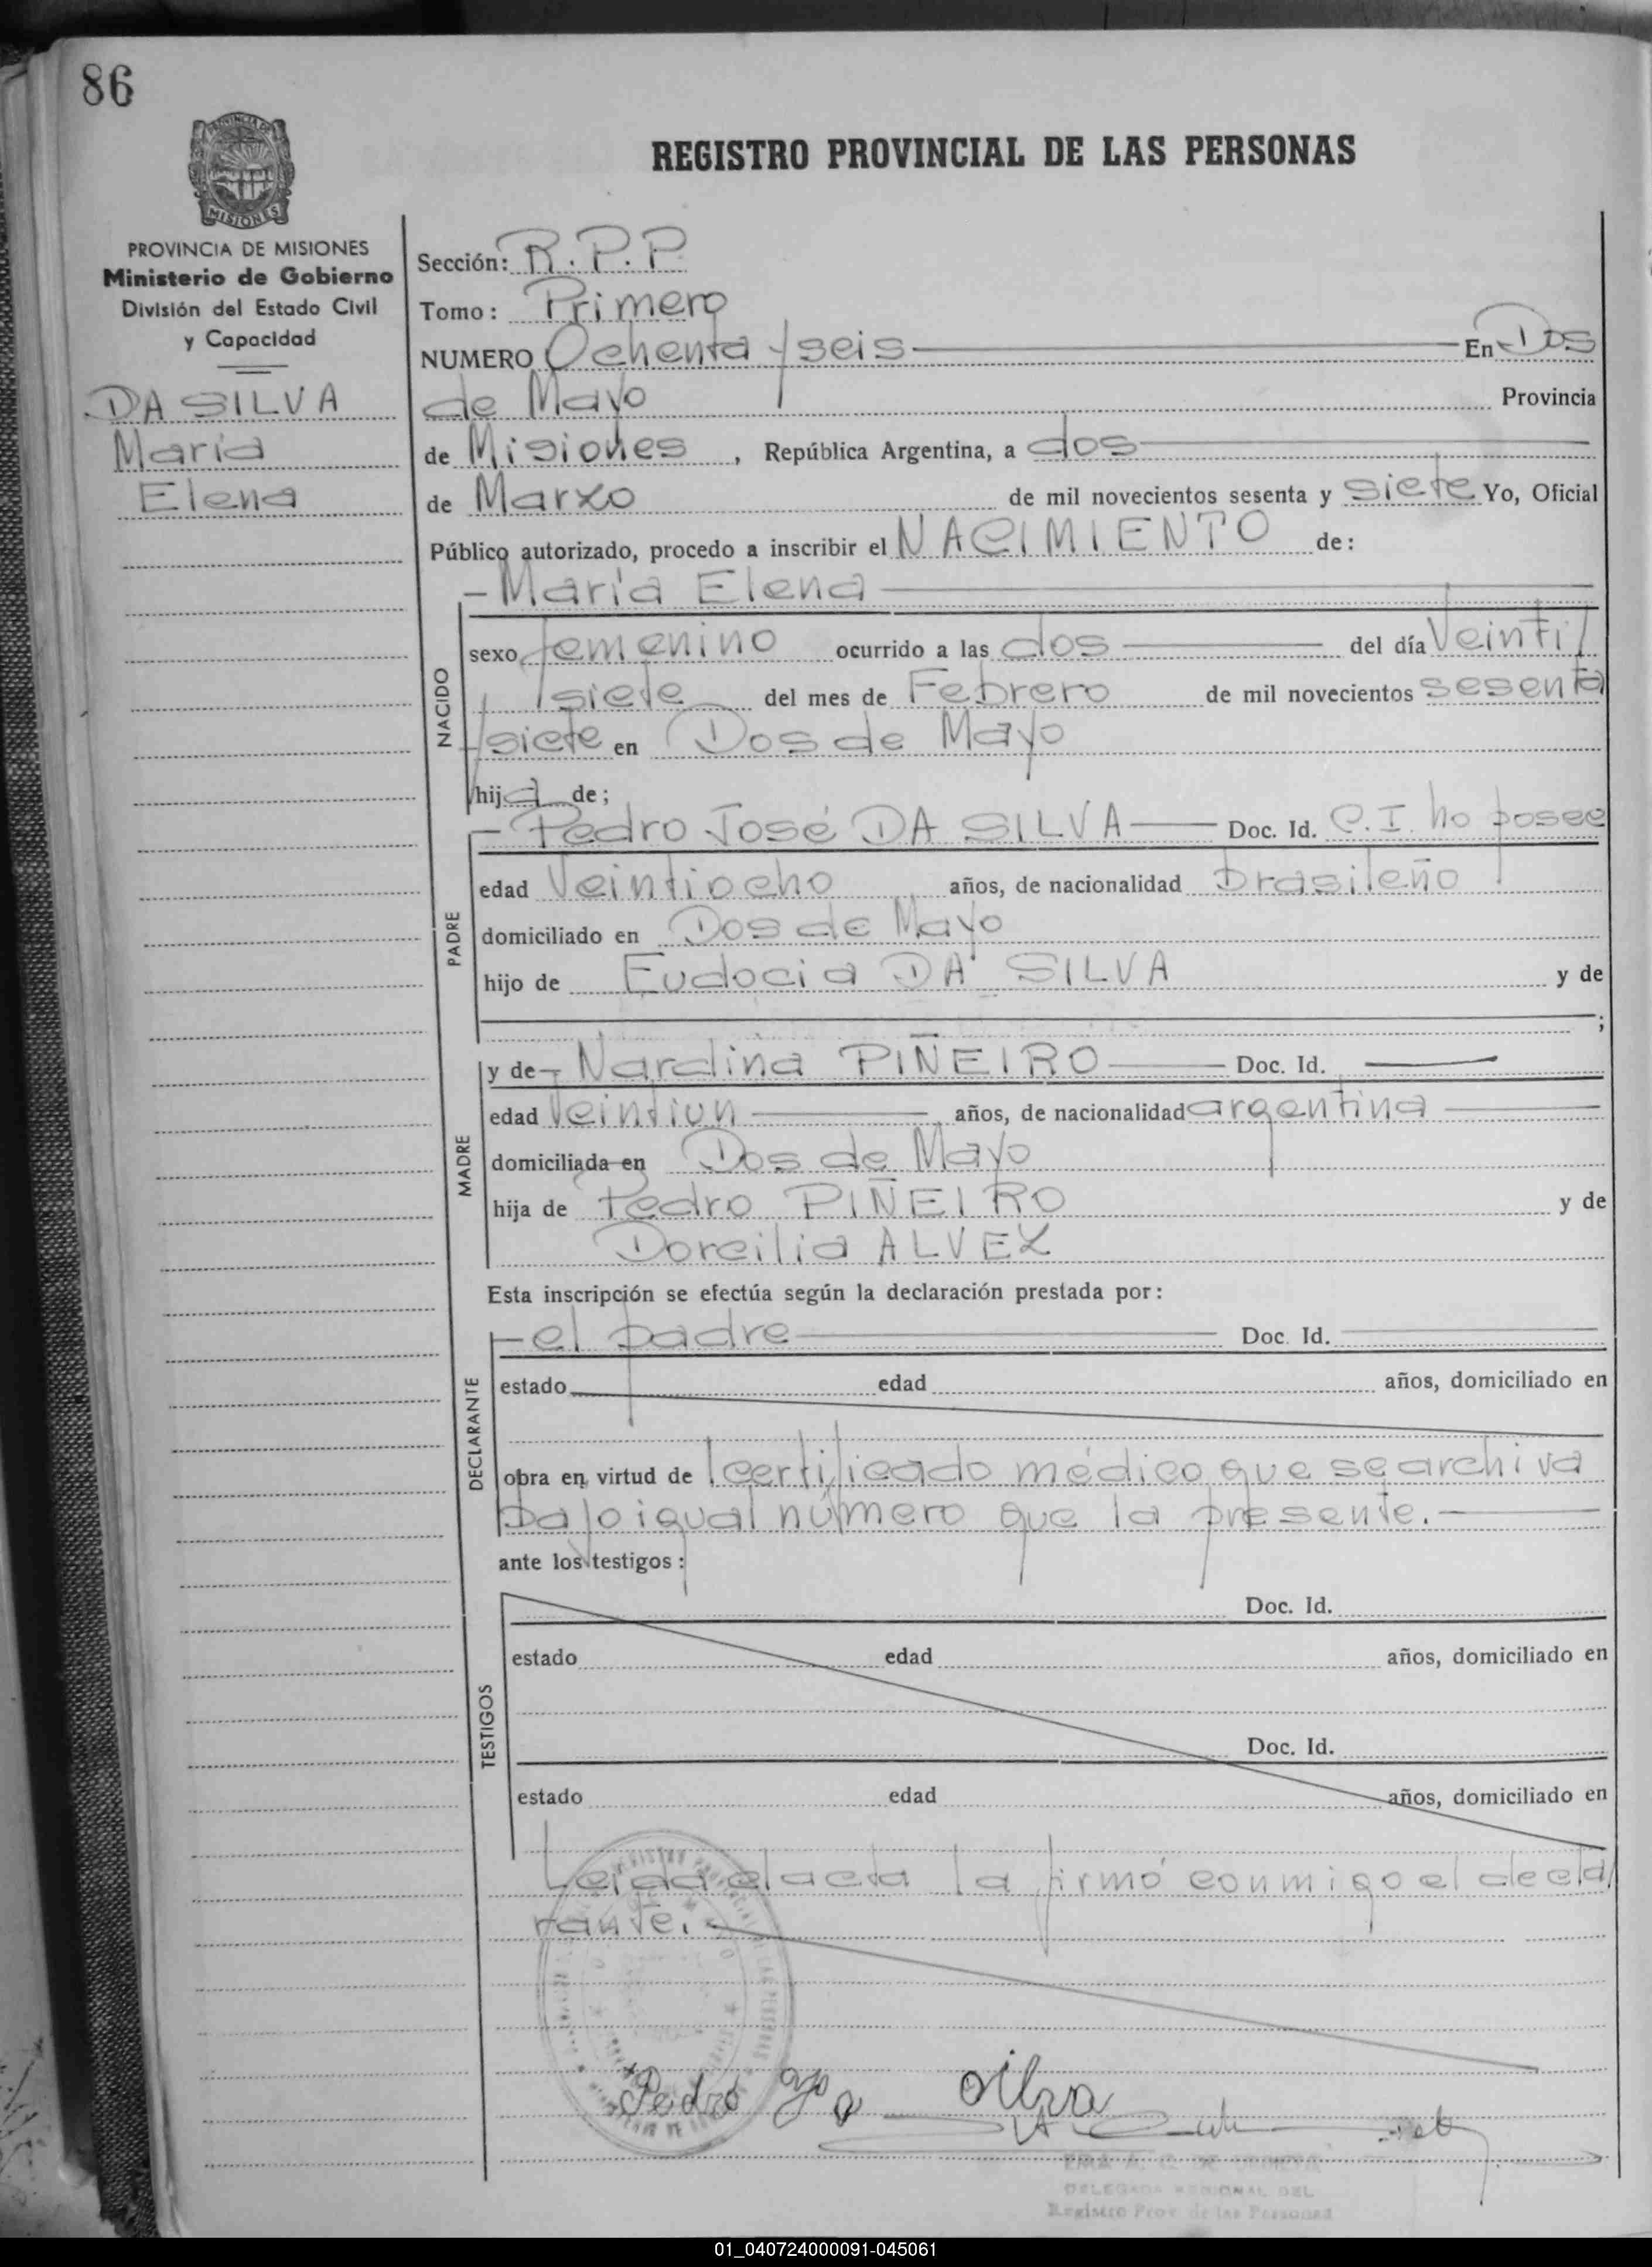 86
PROVINCIA DE MISIONES
Ministerio de Gobierno
División del Estado Civil
y Capacidad
DA SILVA
María
Elena
REGISTRO PROVINCIAL DE LAS PERSONAS
Sección: R.P.P.
Tomo: Primero
NUMERO Ochenta y seis En Dos
de Mayo Provincia
de Misiones, República Argentina, a dos
de Marzo de mil novecientos sesenta y siete Yo, Oficial
Público autorizado, procedo a inscribir el NACIMIENTO de:
- María Elena
NACIDO
sexo femenino ocurrido a las dos del día Veinti
siete del mes de Febrero de mil novecientos sesenta
y siete en Dos de Mayo
hija de;
- Pedro José DA SILVA Doc. Id. C.I. no posee
PADRE
edad Veintiocho años, de nacionalidad brasileño
domiciliado en Dos de Mayo
hijo de Eudocia DA SILVA y de
;
MADRE
y de - Nardina PIÑEIRO Doc. Id.
edad Veintiun años, de nacionalidad argentina
domiciliada en Dos de Mayo
hija de Pedro PIÑEIRO y de
Dorcilia ALVEZ
Esta inscripción se efectúa según la declaración prestada por:
DECLARANTE
- el padre Doc. Id.
estado edad años, domiciliado en
obra en virtud de certificado médico que se archiva
bajo igual número que la presente.
ante los testigos:
TESTIGOS
Doc. Id.
estado edad años, domiciliado en
Doc. Id.
estado edad años, domiciliado en
Leída el acta la firmó conmigo el decla
rante.
Pedro silva
DELEGADA REGIONAL DEL
Registro Prov. de las Personas
01_040724000091-045061